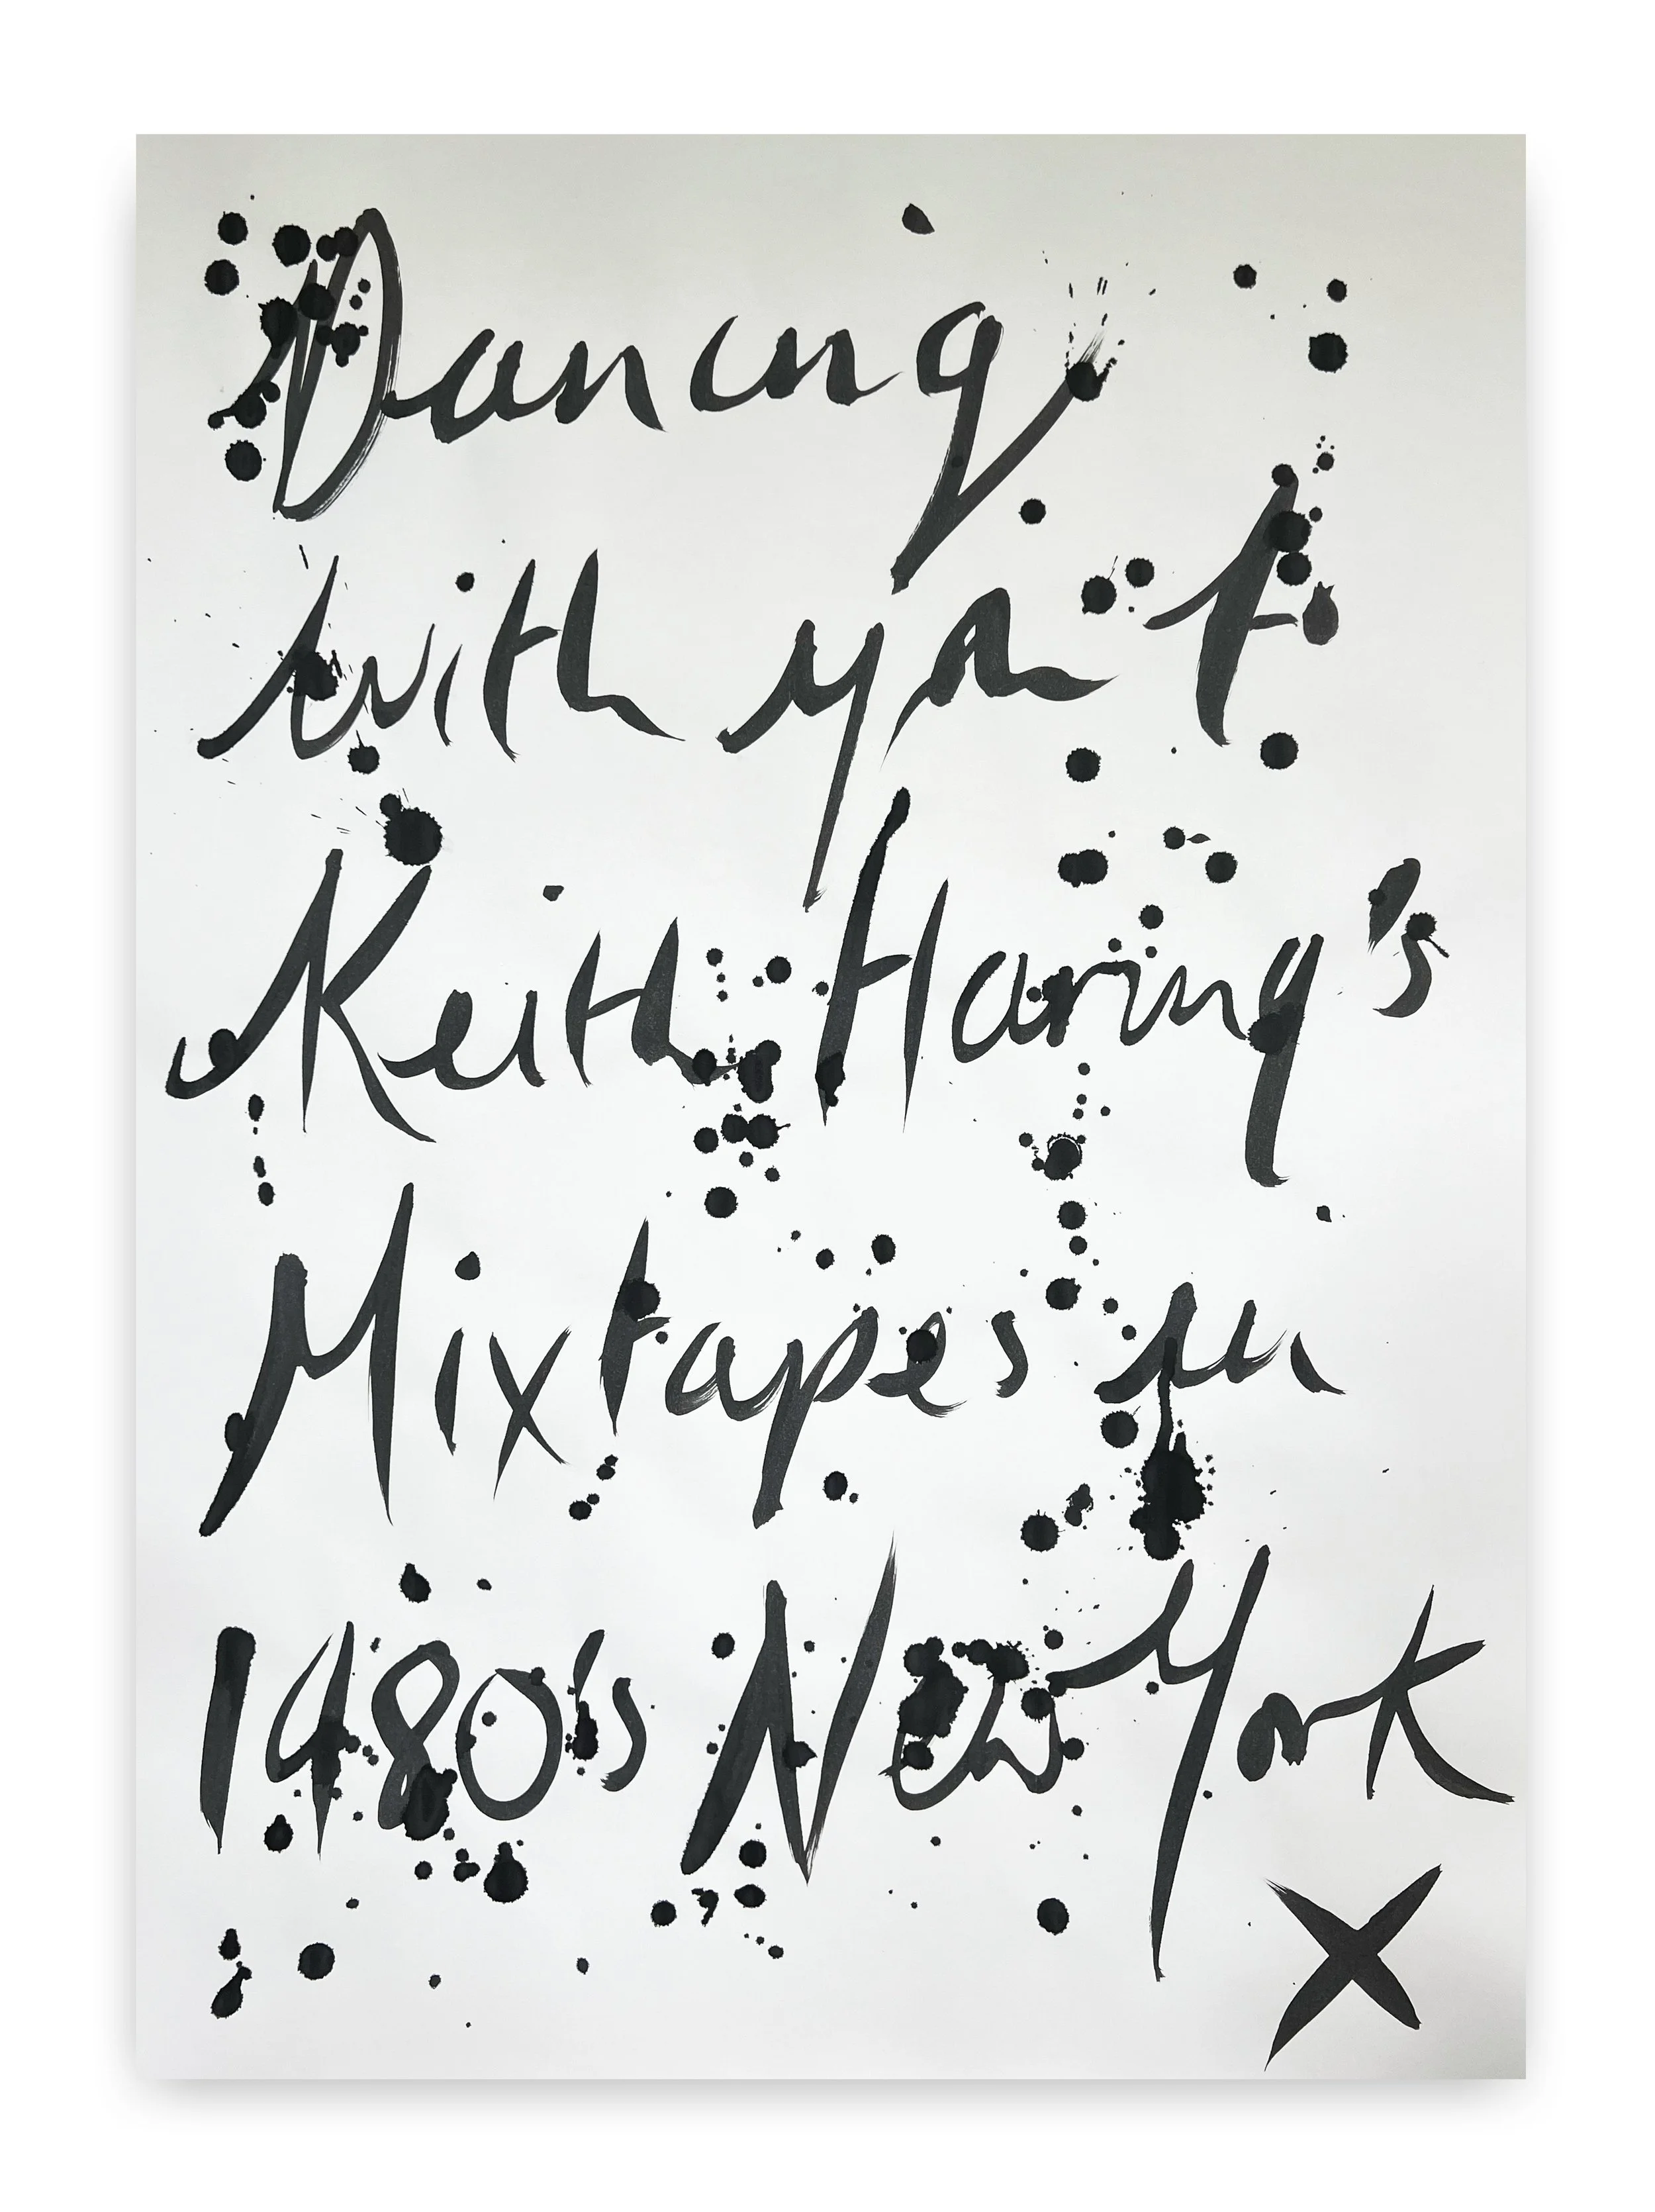 Dancing
with you to
Keith Haring's
Mixtapes in
1980's New York
X